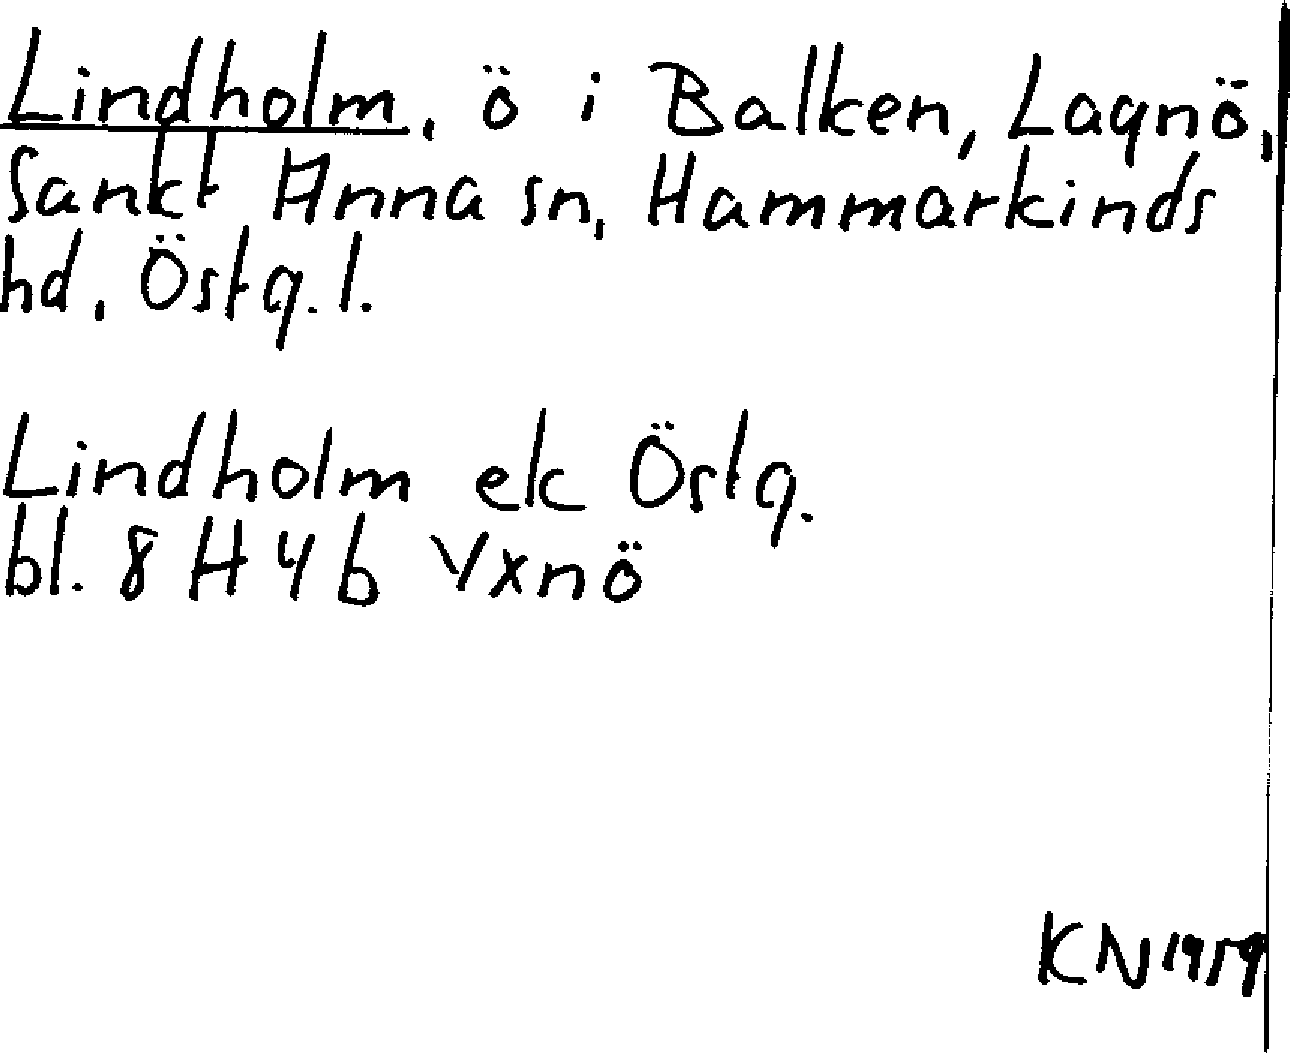 Lindholm, ö i Balken, Lagnö,
Sankt Anna sn, Hammarkinds
hd, Östg. l.
Lindholm ek Östg.
bl. 8 H 4 b Yxnö
KN 1959